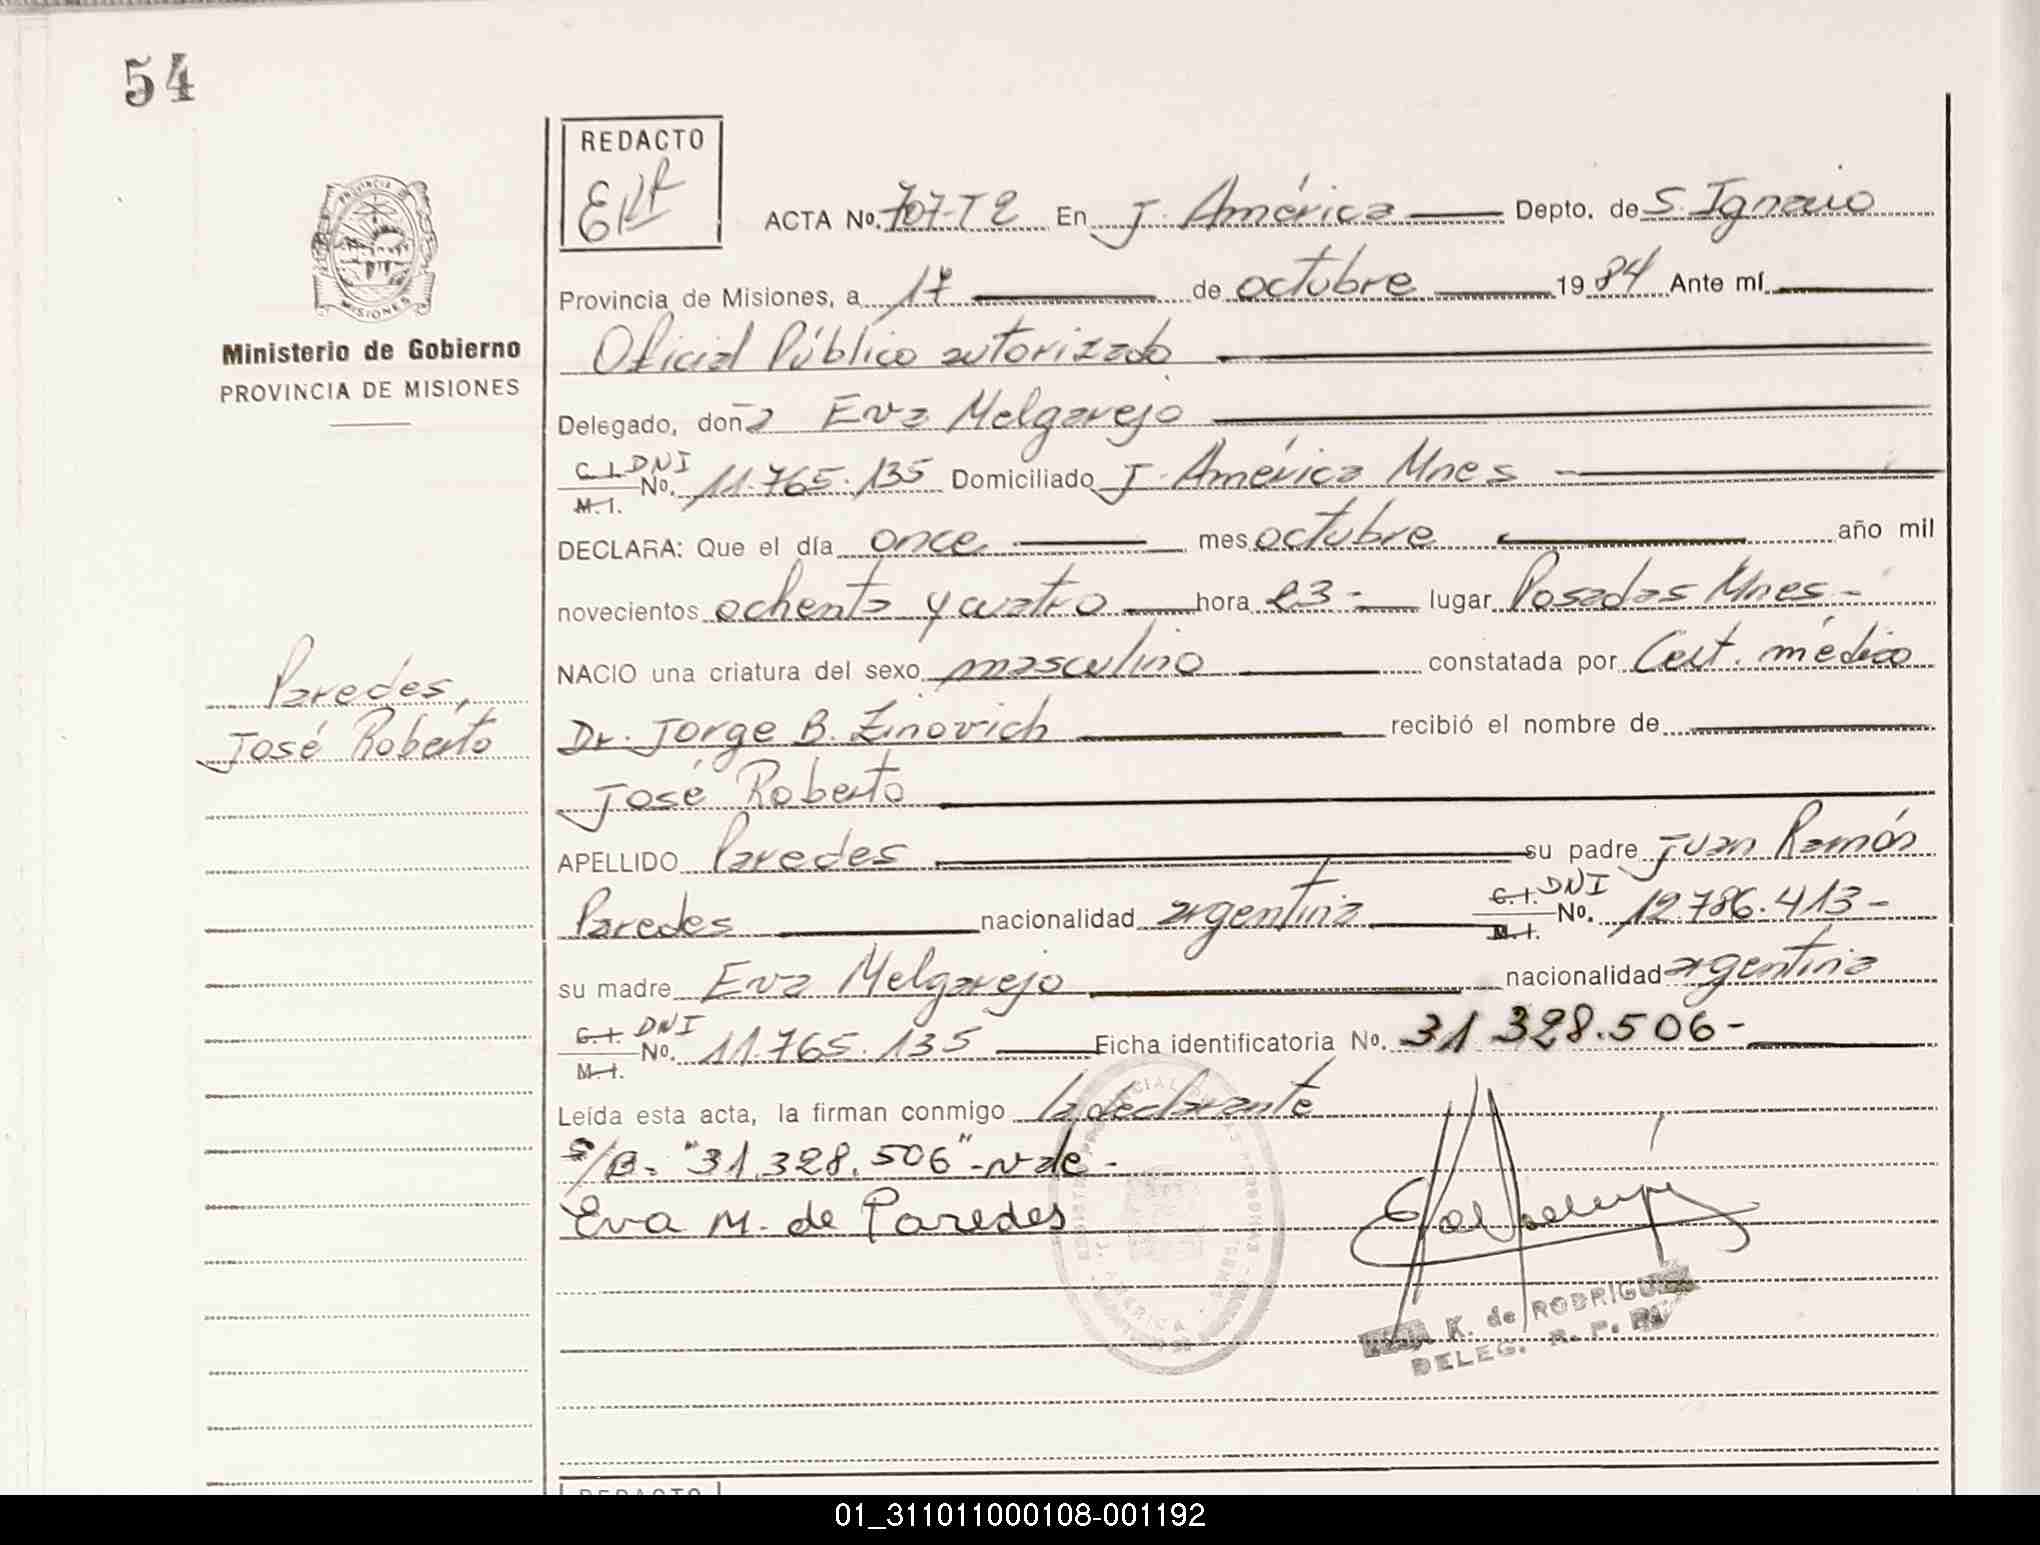 54
REDACTO
ACTA No. 707-T2 En J. América Depto. de S. Ignacio
PROVINCIA DE
MISIONES
Provincia de Misiones, a 17 de octubre 1984 Ante mí
Ministerio de Gobierno
PROVINCIA DE MISIONES
Oficial Público autorizado
Delegado, doña Eva Melgarejo
C.I. DNI
M.I. No. 11.765.135 Domiciliado J. América Mnes
DECLARA: Que el día once mes octubre año mil
novecientos ochenta y cuatro hora 23- lugar Posadas Mnes.-
NACIO una criatura del sexo masculino constatada por Cert. médico
Paredes,
José Roberto
Dr. Jorge B. Zinovich recibió el nombre de
José Roberto
APELLIDO Paredes su padre Juan Ramón
Paredes nacionalidad argentina C.I. DNI M.I. No. 12.786.413-
su madre Eva Melgarejo nacionalidad argentina
C.I. DNI
M.I. No. 11.765.135 Ficha identificatoria No. 31 328.506-
Leída esta acta, la firman conmigo la declarante
s/B. "31.328.506"-vale-
Eva M. de Paredes
K. de RODRIGUEZ
DELEG. R. P.
REDACTO
01_311011000108-001192